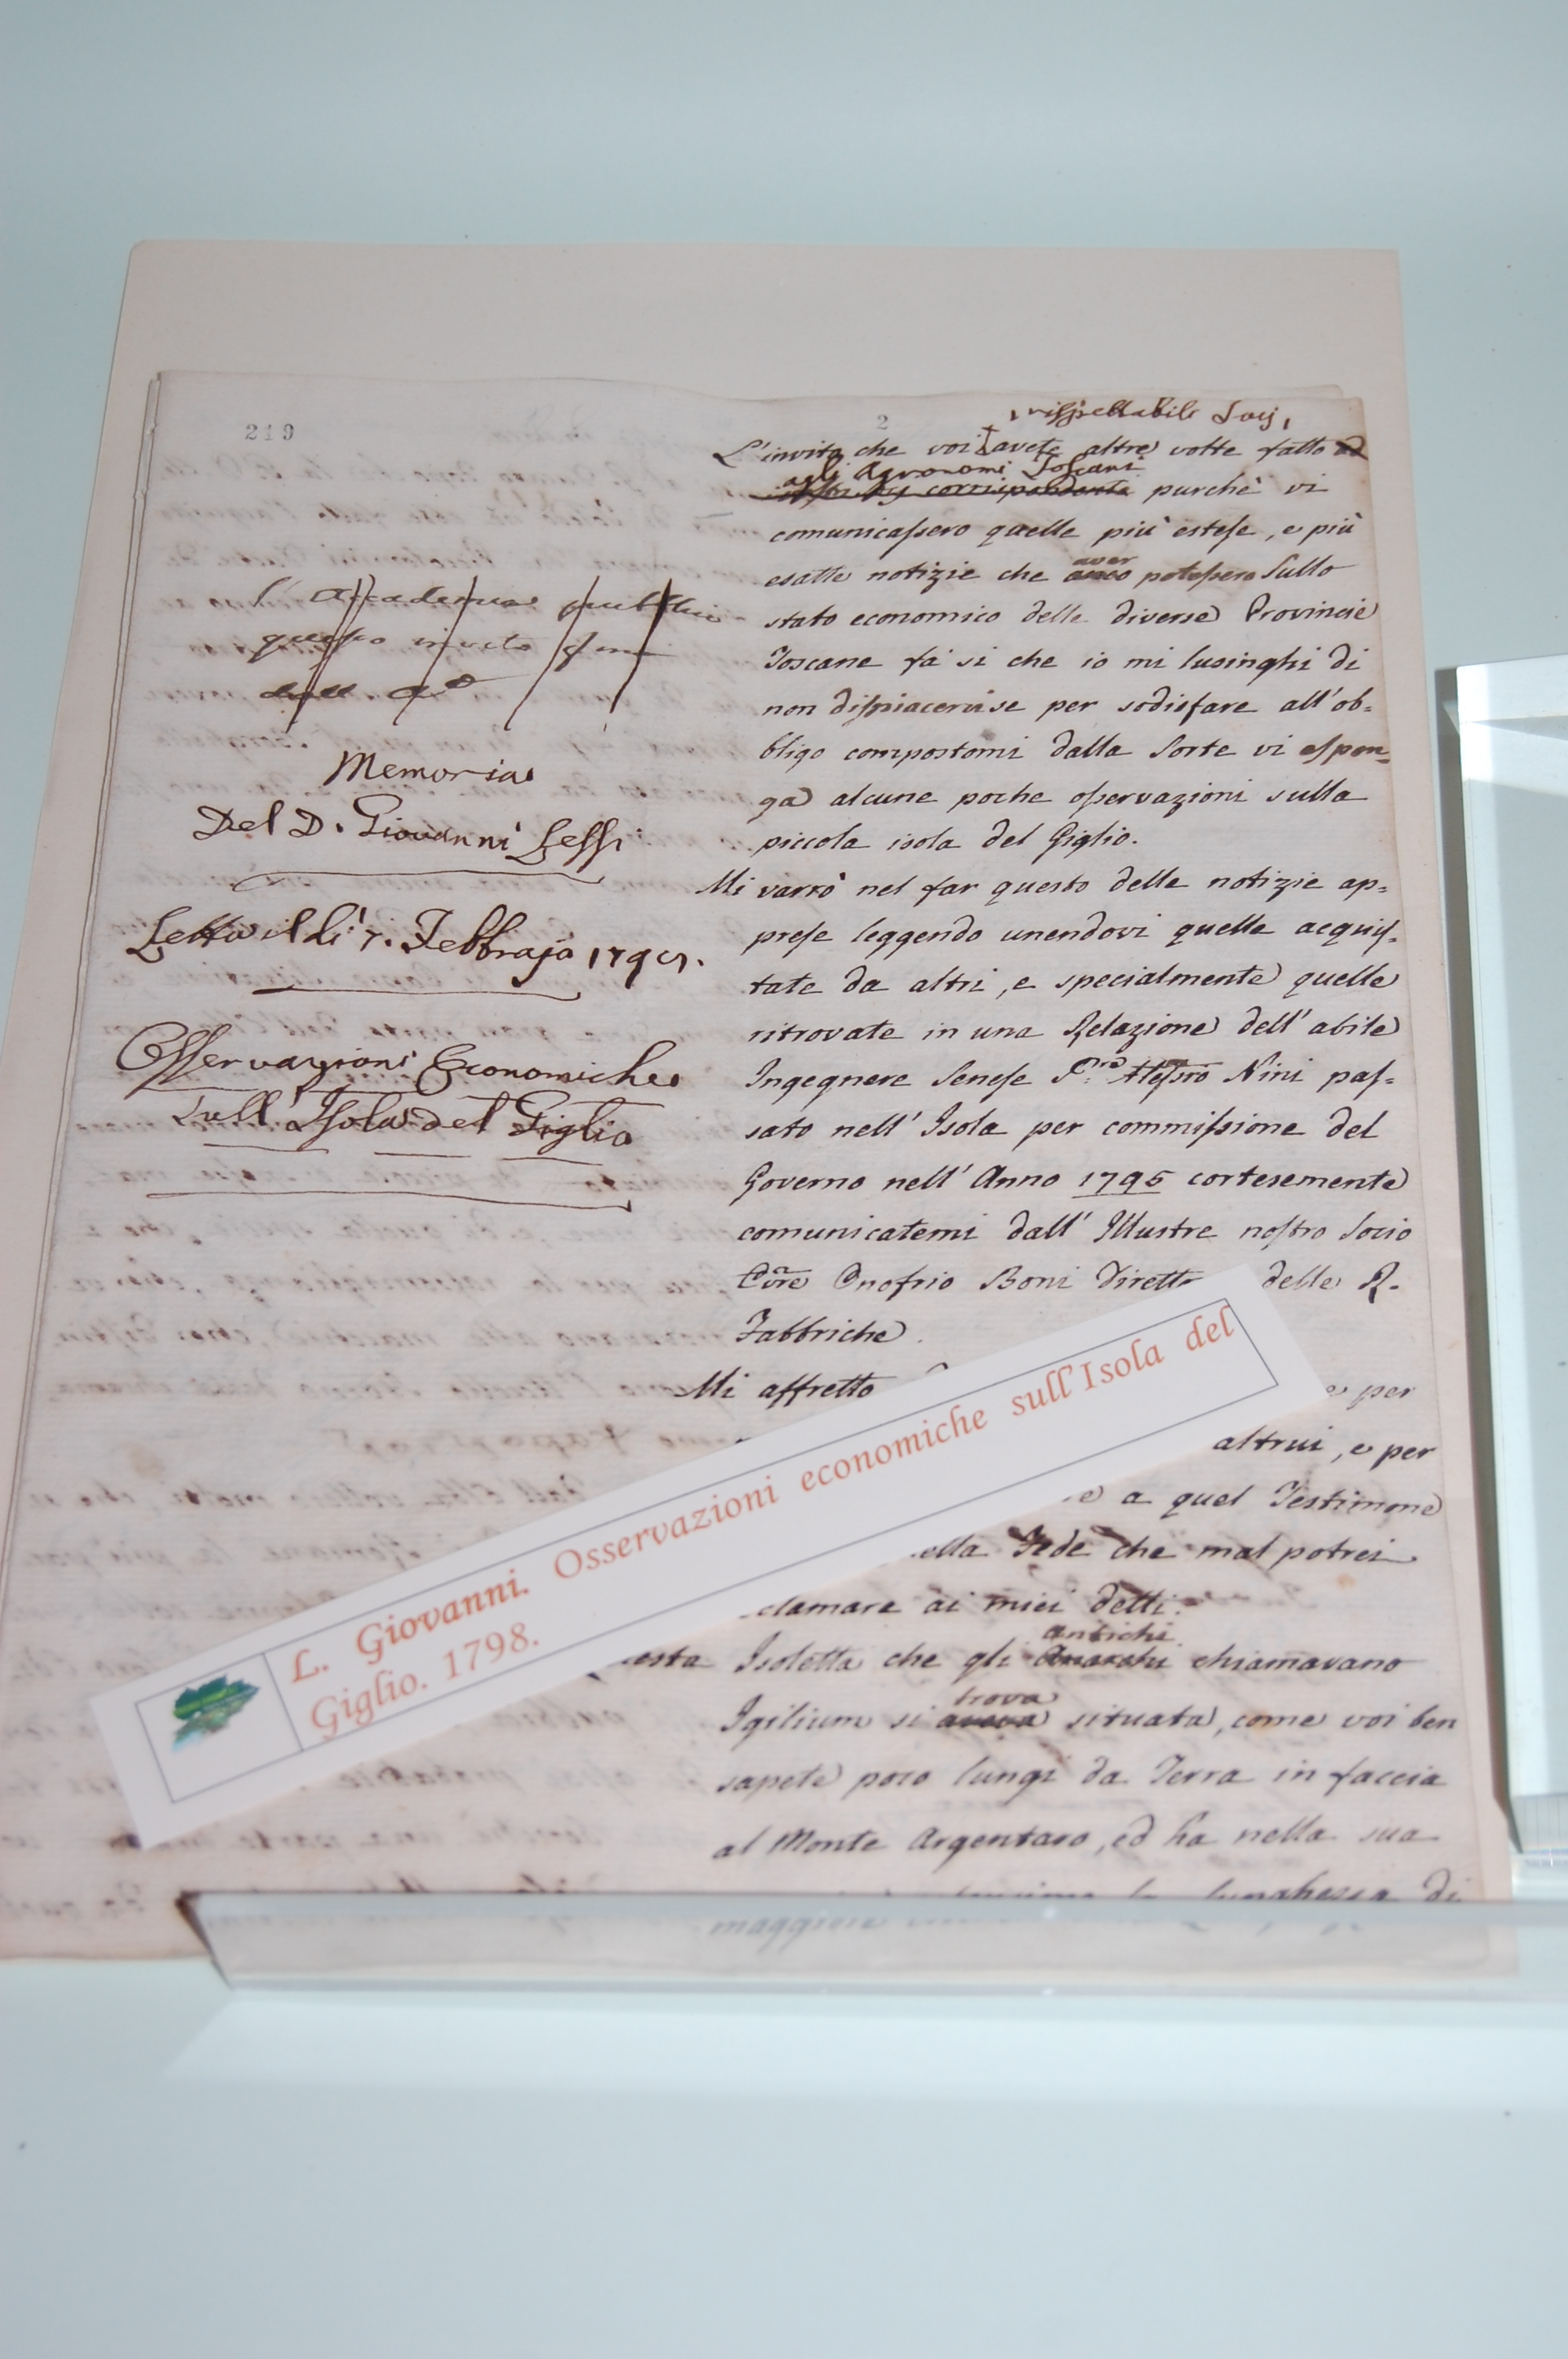 219
2
L'Accademia
questo invito
Memoria
Del D. Giovanni Lessi
Letto il dì 7. Febbrajo
Osservazioni Economiche
sull'Isola del Giglio
, rispettabili Socj,
L'invito che voi avete altre volte fatto ad
agli Agronomi Toscani
corrispondenti purchè vi
comunicassero quelle più estese, e più
aver
esatte notizie che potessero sullo
stato economico delle diverse Provincie
Toscane fà si che io mi lusinghi di
non dispiacervi se per sodisfare all'ob=
bligo compostomi dalla sorte vi espon=
ga alcune poche osservazioni sulla
piccola isola del Giglio.
Mi varrò nel far questo delle notizie ap=
prese leggendo unendovi quelle acquis=
tate da altri, e specialmente quelle
ritrovate in una Relazione dell'abile
Ingegnere Senese Nini pas=
sato nell'Isola per commissione del
Governo nell'Anno 1795 cortesemente
comunicatemi dall'Illustre nostro Socio
Onofrio Boni Dirett delle R.
Fabbriche.
Mi affretto
e per
altrui, e per
e a quel Testimone
ella Fede che mal potrei
clamare ai miei detti.
antichi
esta Isoletta che gli chiamavano
trova
Igilium si aveva situata, come voi ben
sapete poco lungi da Terra in faccia
al Monte Argentaro, ed ha nella sua
lunghezza di
maggiore
L. Giovanni. Osservazioni economiche sull'Isola del
Giglio. 1798.